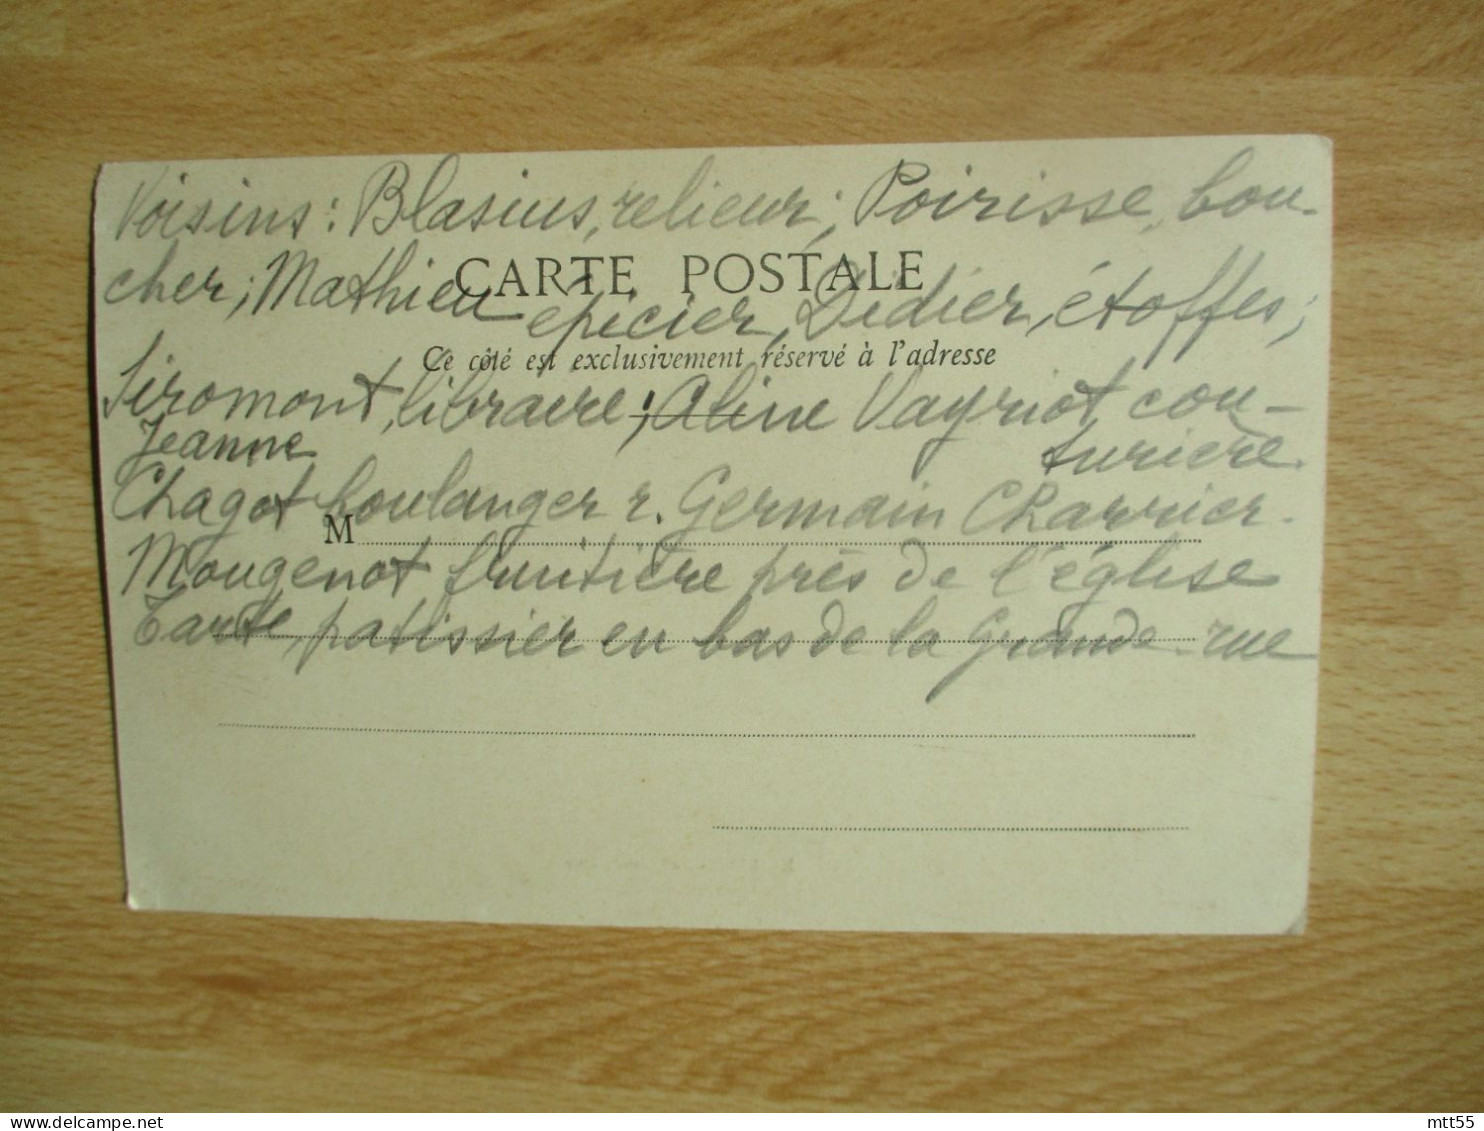 Voisins : Blasius, relieur; Poirisse, bou-
cher; Mathieu épicier, Didier, étoffes;
CARTE POSTALE
Ce côté est exclusivement réservé à l'adresse
Siromont, libraire; Aline Vayriot cou-
turière.
Jeanne
Chagot boulanger r. Germain Charrier.
M
Mougenot fruitière près de l'église
Tarte, patissier en bas de la Grande-rue
mtt55